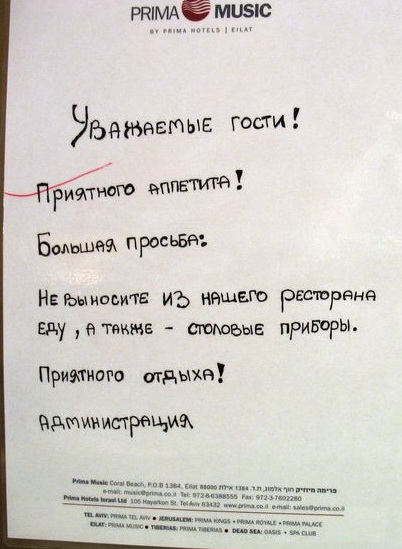 PRIMA MUSIC
BY PRIMA HOTELS | EILAT
Уважаемые гости!
Приятного аппетита!
Большая просьба:
Не выносите из нашего ресторана
еду, а также - столовые приборы.
Приятного отдыха!
Администрация
Prima Music Coral Beach, P.O.B 1384, Eilat 88000 פרימה מיוזיק חוף אלמוג, ת.ד. 1384 אילת
e-mail: music@prima.co.il Tel: 972-8-6388555 Fax: 972-3-7602280
Prima Hotels Israel Ltd 105 Hayarkon St. Tel-Aviv 63432 www.prima.co.il e-mail: sales@prima.co.il
TEL AVIV: PRIMA TEL AVIV • JERUSALEM: PRIMA KINGS • PRIMA ROYALE • PRIMA PALACE
EILAT: PRIMA MUSIC • TIBERIAS: PRIMA TIBERIAS • DEAD SEA: OASIS • SPA CLUB